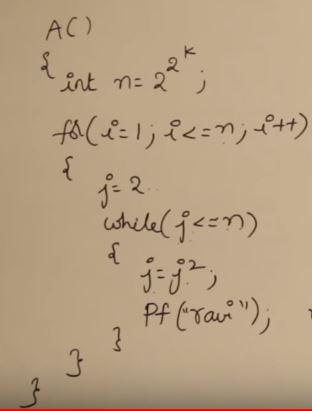 A()
{
int n= 2^2^k;
for(i=1; i<=n; i++)
{
j=2
while(j<=n)
{
j=j²;
Pf("ravi");
}
}
}